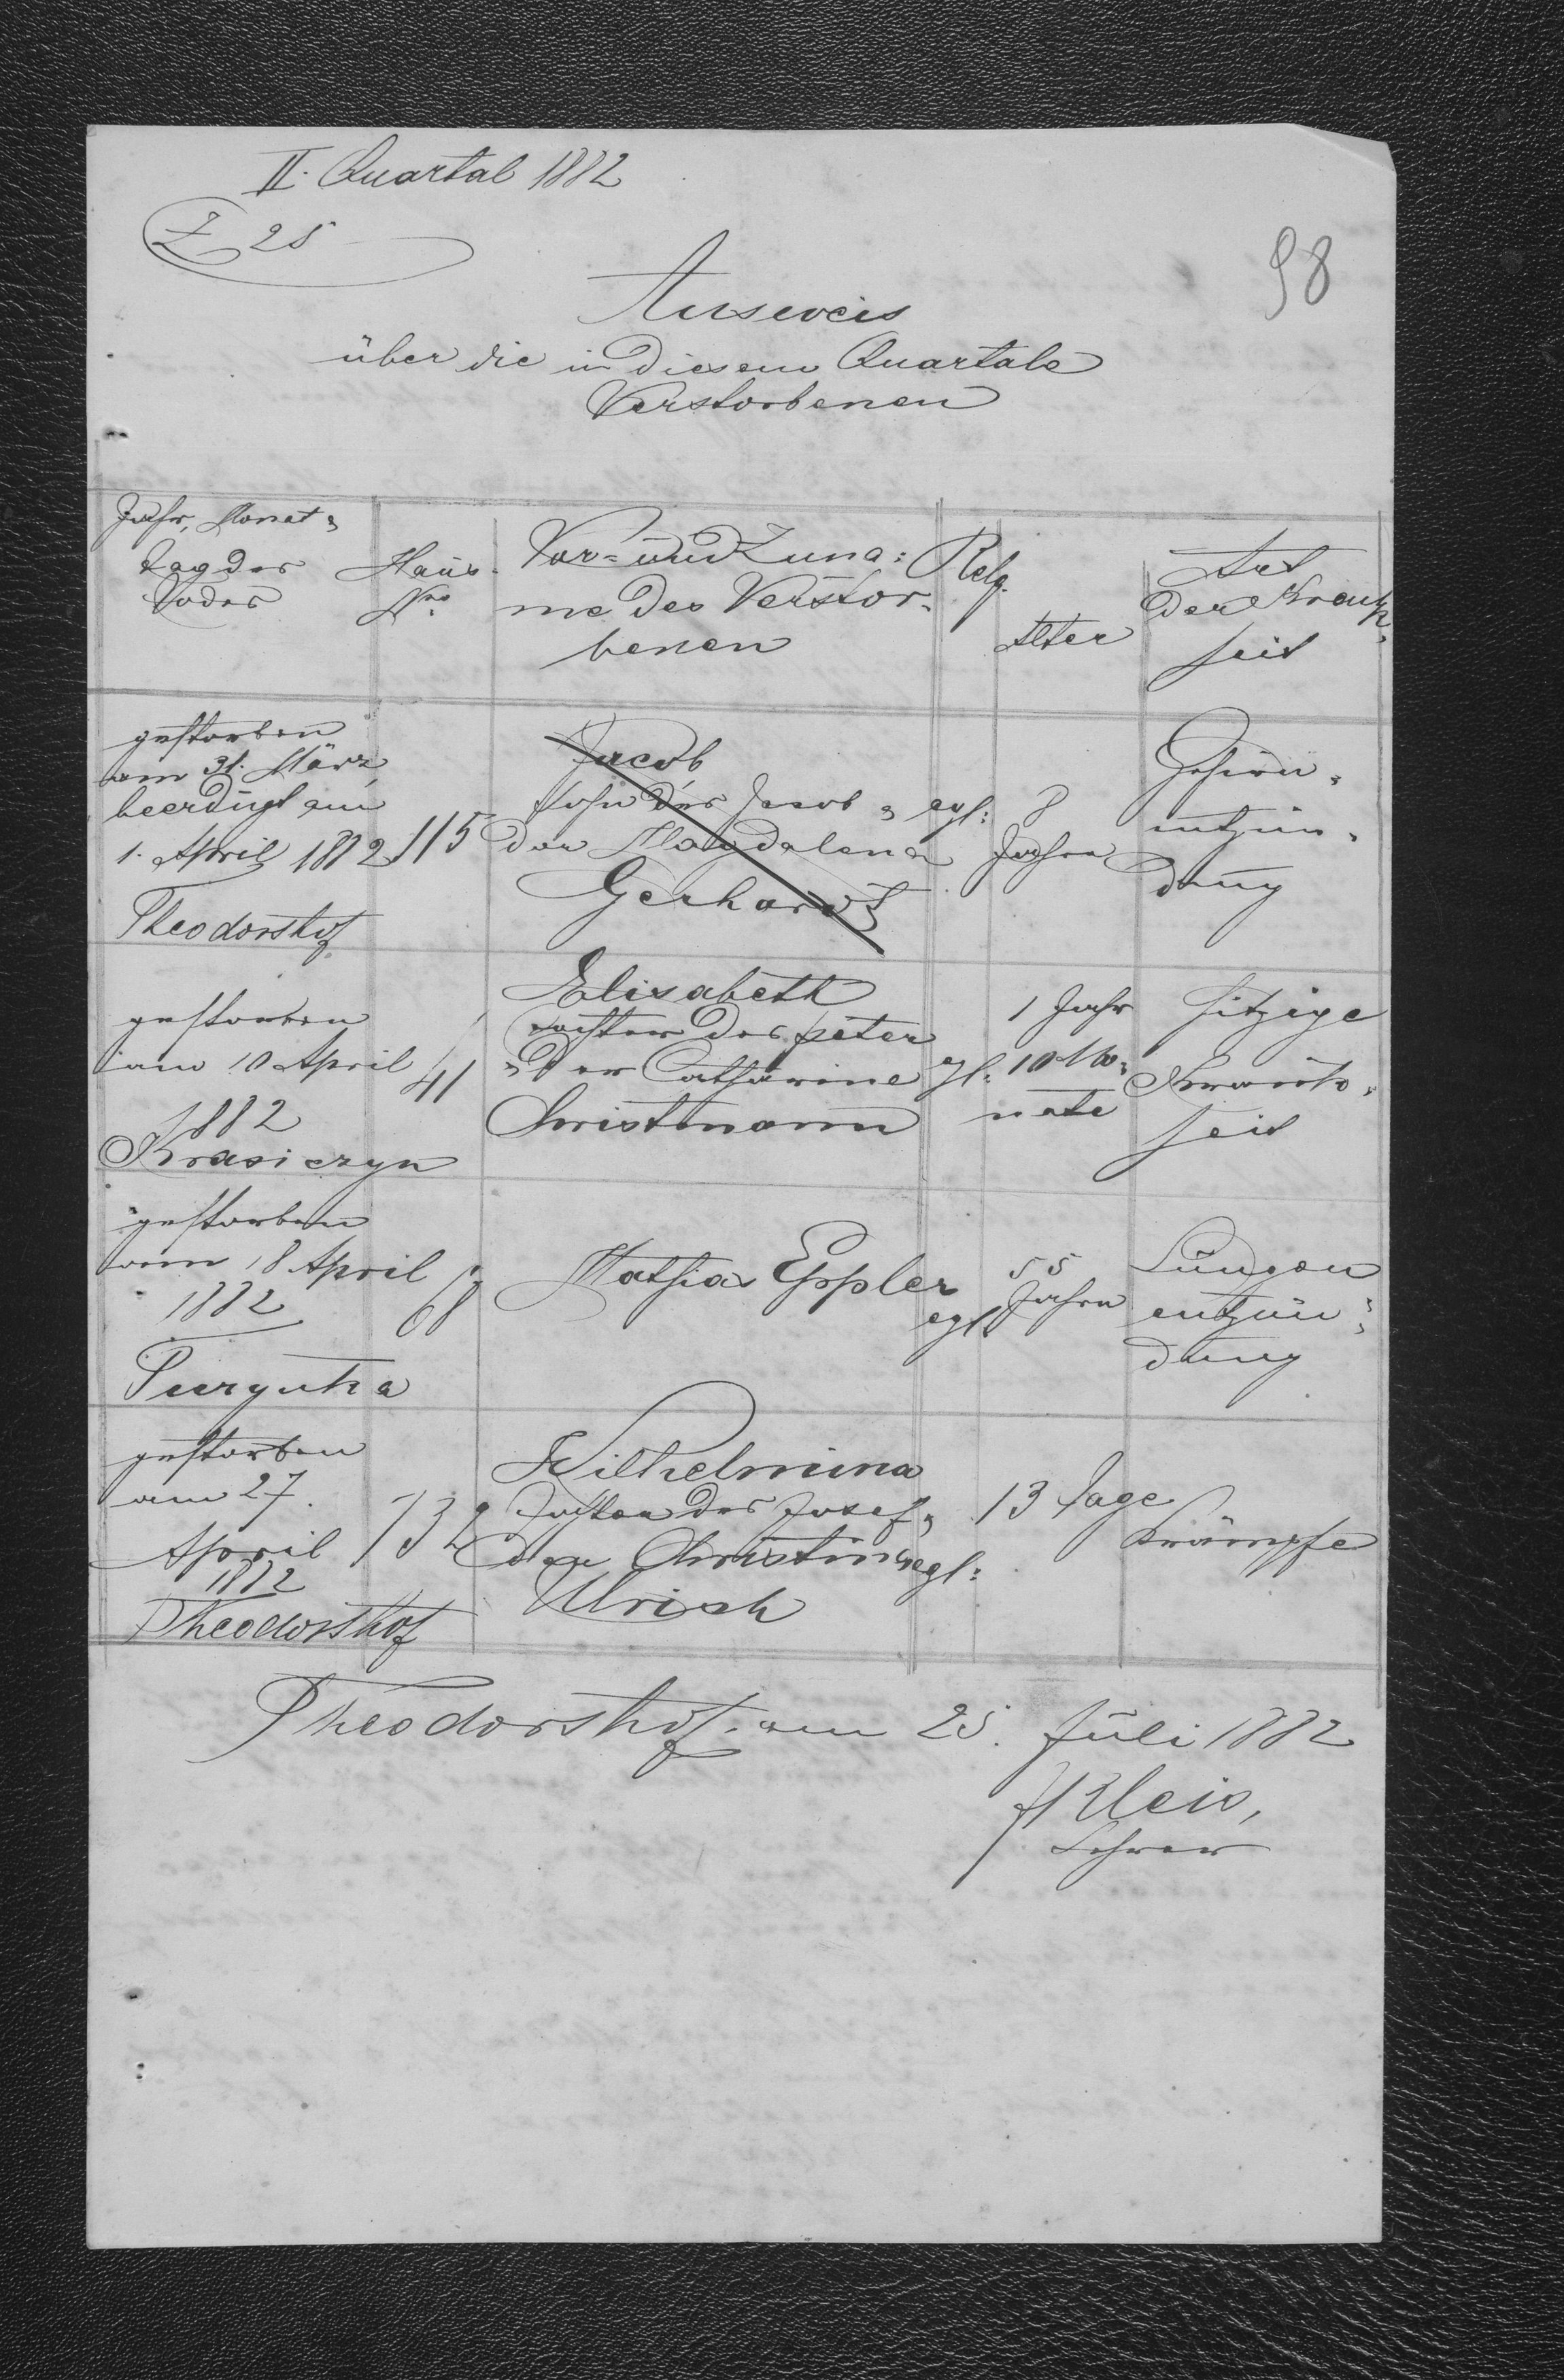 II. Quartal 1882
Z 25
98
Ausweis
über die in diesem Quartale
Verstorbenen
Jahr, Monat &
Tag des
Todes
Haus-
Nro
Vor= und Zuna=
me des Verstor-
benen
Relg.
Alter
Art
der Krank=
heit
gestorben
am 31. März,
beerdigt am
1. April 1882
Theodorshof
115
Jacob
Sohn des Jacob &
der Magdalena
Gerhardt
egl:
8
Jahre
Gehirn=
entzün=
dung
gestorben
am 10 April
1882
Krasiczyn
41
Elisabeth
Tochter des Peter
& der Catharine
Christmann
egl:
1 Jahr
10 Mo=
nate
hitzige
Krank=
heit
gestorben
am 18 April
1882
68
Mathias Eppler
egl:
55
Jahre
Lungen
entzün=
dung
gestorben
am 27.
April
1882
Theodorshof
132
Wilhelmina
Tochter des Josef &
der Christina
Ulrich
egl:
13 Tage
Krämpfe
Theodorshof am 25. Juli 1882
Lehrer